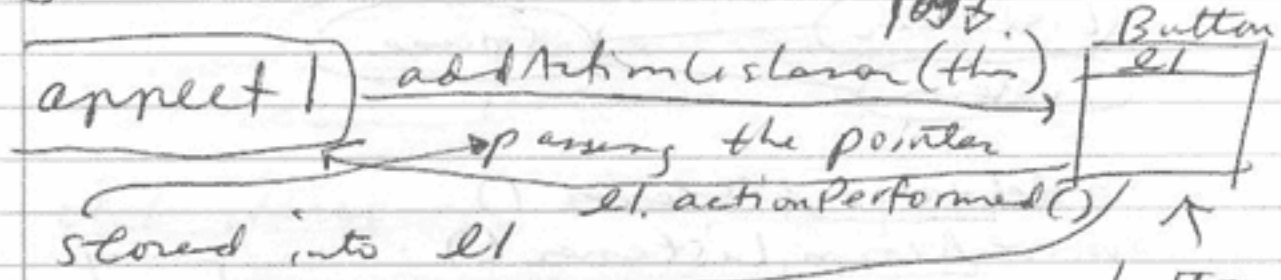 Button
applet 1 addActionListener(this) el
passing the pointer
el.actionPerformed()
stored into el